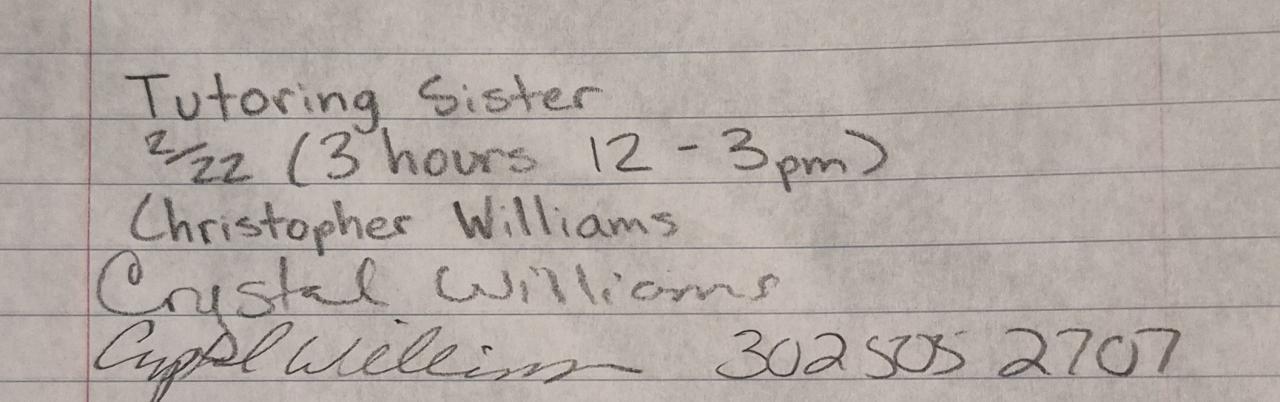 Tutoring Sister
2/22 (3 hours 12 - 3pm)
Christopher Williams
Crystal Williams
Crystal Williams 302 505 2707